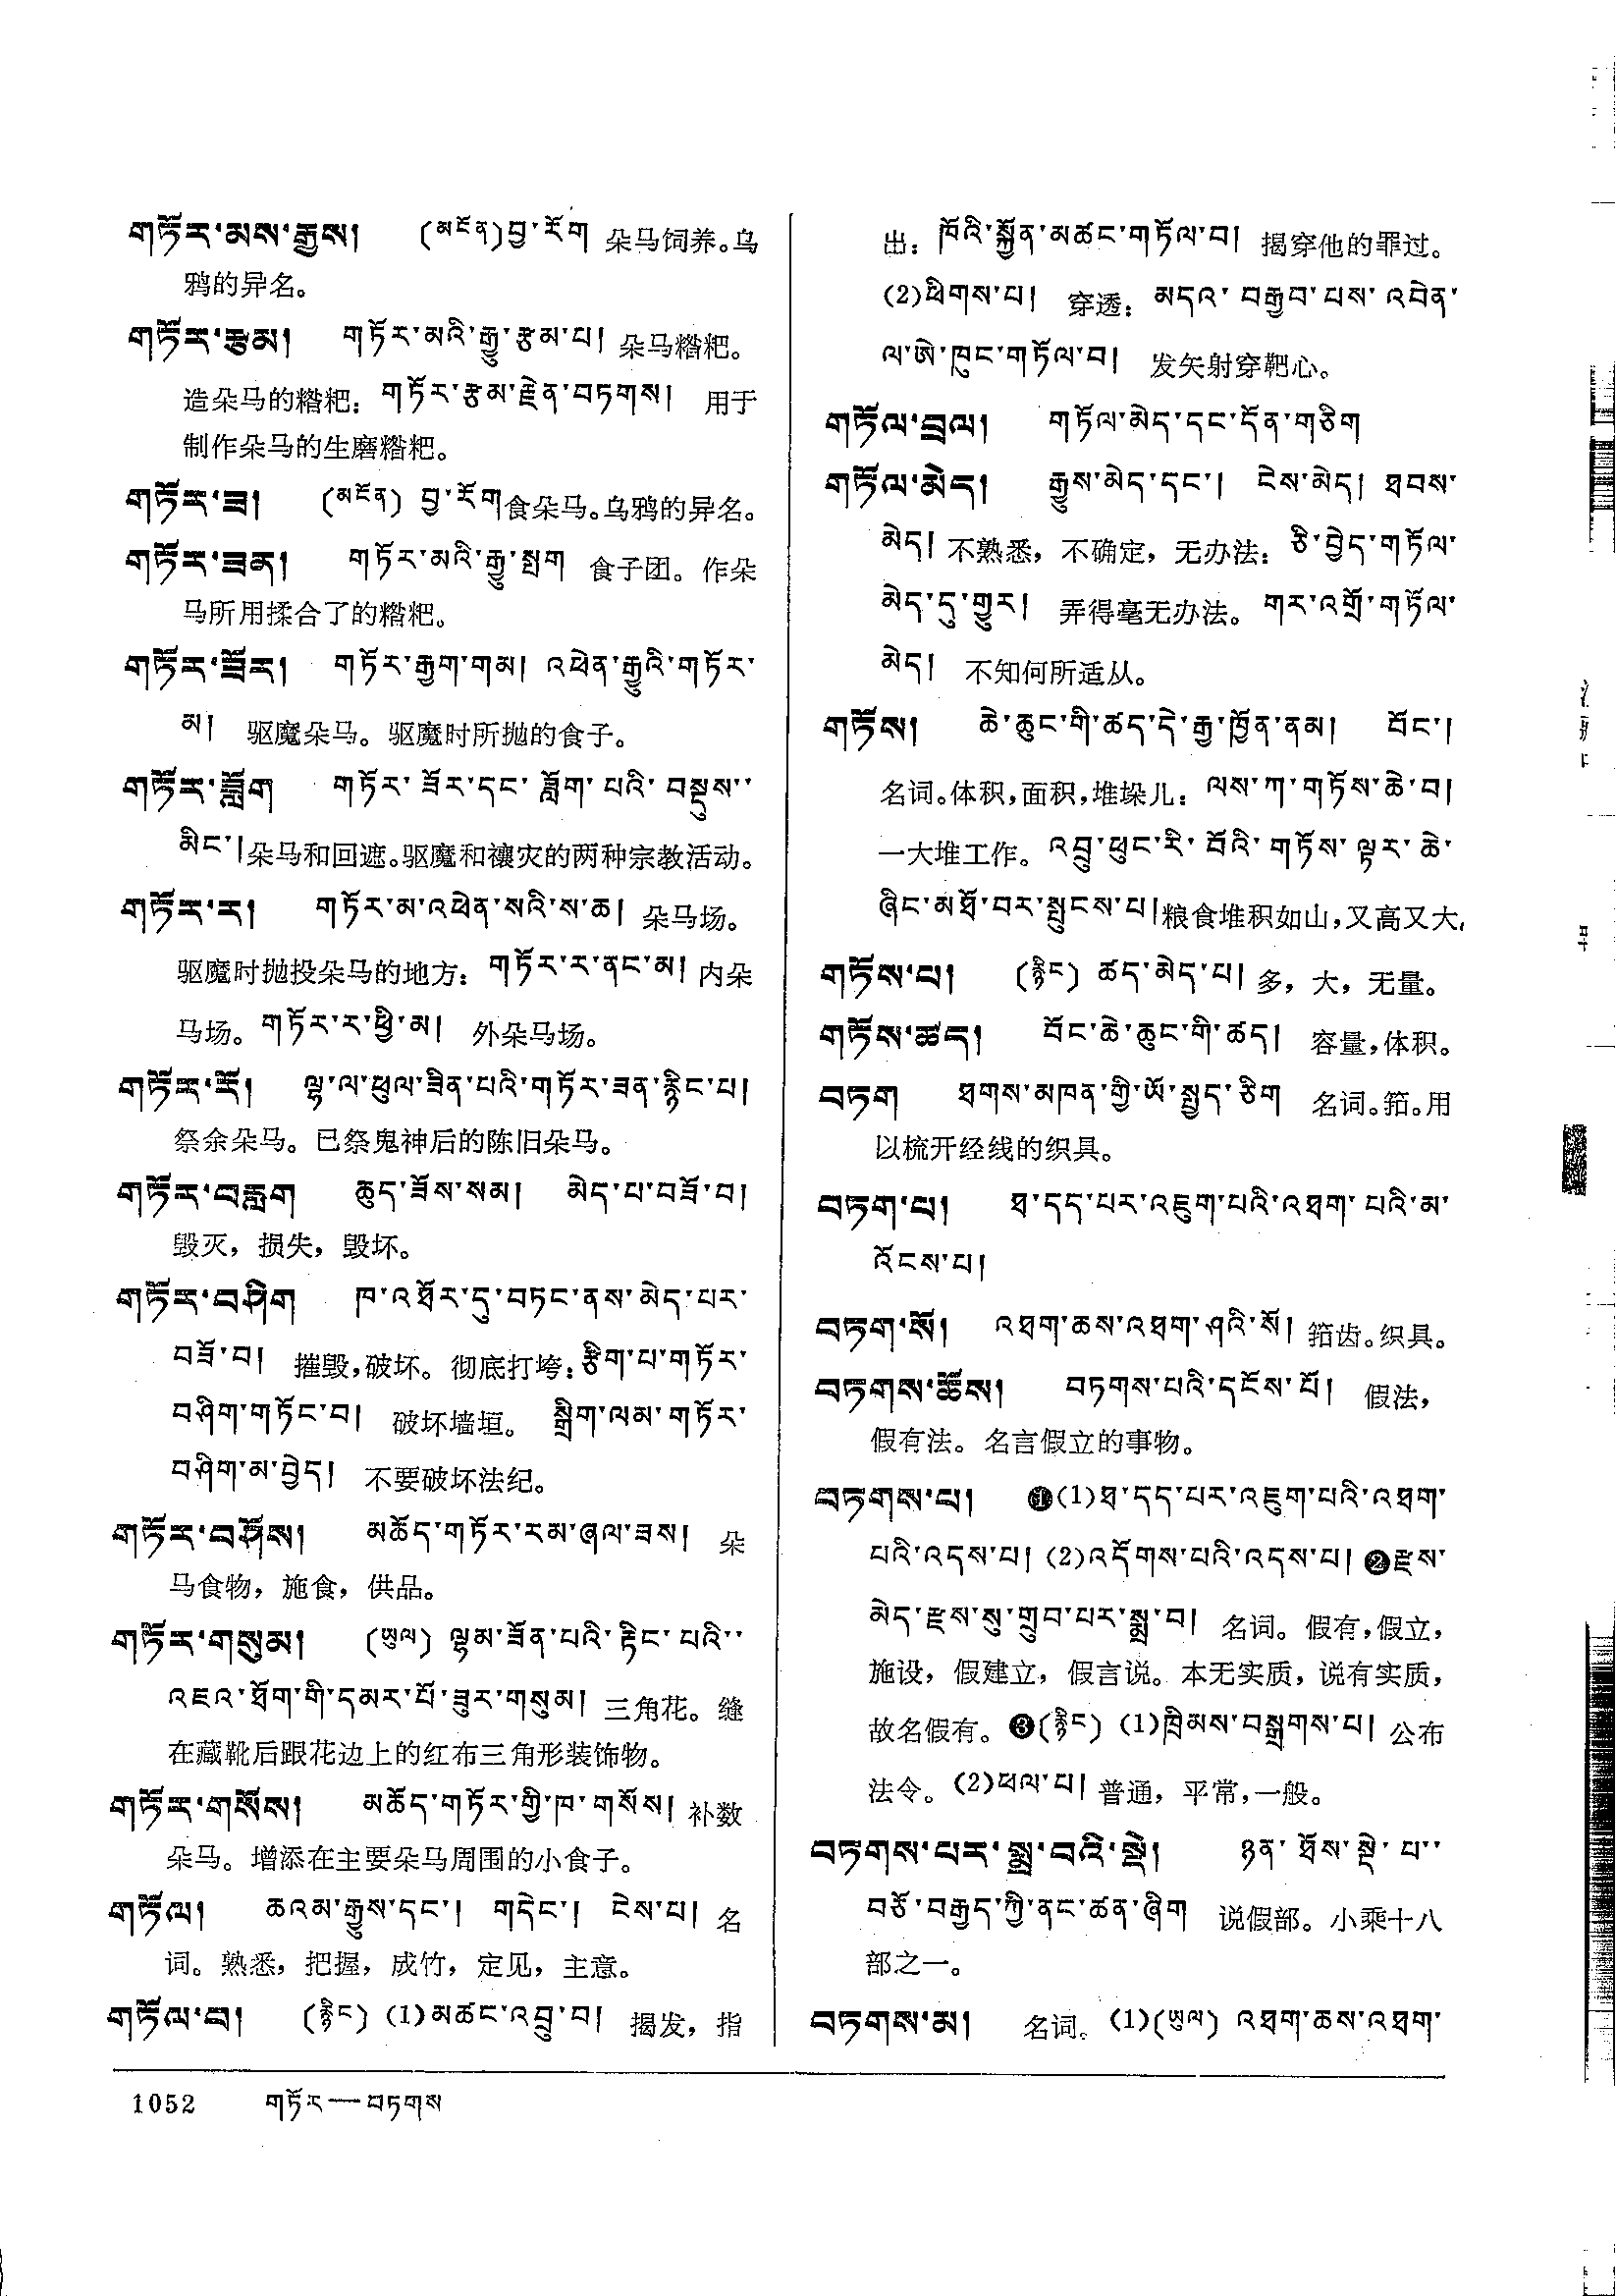 གཏོར་མས་རྒྱས། (མངོན)བྱ་རོག 朵马饲养。乌
鸦的异名。
གཏོར་རྩམ། གཏོར་མའི་རྒྱུ་རྩམ་པ། 朵马糌粑。
造朵马的糌粑：གཏོར་རྩམ་རྗེན་བཏགས། 用于
制作朵马的生磨糌粑。
གཏོར་ཟ། (མངོན) བྱ་རོག食朵马。乌鸦的异名。
གཏོར་ཟན། གཏོར་མའི་རྒྱུ་སྤག 食子团。作朵
马所用揉合了的糌粑。
གཏོར་ཟོར། གཏོར་རྒྱག་གམ། འཕེན་རྒྱུའི་གཏོར་
མ། 驱魔朵马。驱魔时所抛的食子。
གཏོར་ཟློག གཏོར་ ཟོར་དང་ ཟློག་ པའི་ བསྡུས་་
མིང་།朵马和回遮。驱魔和禳灾的两种宗教活动。
གཏོར་ར། གཏོར་མ་འཕེན་སའི་ས་ཆ། 朵马场。
驱魔时抛投朵马的地方：གཏོར་ར་ནང་མ། 内朵
马场。གཏོར་ར་ཕྱི་མ། 外朵马场。
གཏོར་རོ། ལྷ་ལ་ཕུལ་ཟིན་པའི་གཏོར་ཟན་རྙིང་པ།
祭余朵马。已祭鬼神后的陈旧朵马。
གཏོར་བརླག ཆུད་ཟོས་སམ། མེད་པ་བཟོ་བ།
毁灭，损失，毁坏。
གཏོར་བཤིག ཁ་འཐོར་དུ་བཏང་ནས་མེད་པར་
བཟོ་བ། 摧毁，破坏。彻底打垮：རྩིག་པ་གཏོར་
བཤིག་གཏོང་བ། 破坏墙垣。 སྒྲིག་ལམ་གཏོར་
བཤིག་མ་བྱེད། 不要破坏法纪。
གཏོར་བཤོས། མཆོད་གཏོར་རམ་ཞལ་ཟས། 朵
马食物，施食，供品。
གཏོར་གསུམ། (ཡུལ) ལྷམ་ཟོན་པའི་རྟིང་པའི་་
འཇའ་ཐོག་གི་དམར་པོ་ཟུར་གསུམ། 三角花。缝
在藏靴后跟花边上的红布三角形装饰物。
གཏོར་གསོས། མཆོད་གཏོར་གྱི་ཁ་གསོས། 补数
朵马。增添在主要朵马周围的小食子。
གཏོལ། ཆའམ་རྒྱུས་དང་། གདེང་། ངེས་པ། 名
词。熟悉，把握，成竹，定见，主意。
གཏོལ་བ། (རྙིང) (1)མཚང་འབྲུ་བ། 揭发，指
出：ཁོའི་སྐྱོན་མཚང་གཏོལ་བ། 揭穿他的罪过。
(2)ཕིགས་པ། 穿透：མདའ་ བརྒྱབ་ པས་ འབེན་
ལ་ཨེ་ཁུང་གཏོལ་བ། 发矢射穿靶心。
གཏོལ་བྲལ། གཏོལ་མེད་དང་དོན་གཅིག
གཏོལ་མེད། རྒྱུས་མེད་དང་། ངེས་མེད། ཐབས་
མེད། 不熟悉，不确定，无办法：ཅི་བྱེད་གཏོལ་
མེད་དུ་གྱུར། 弄得毫无办法。གར་འགྲོ་གཏོལ་
མེད། 不知何所适从。
གཏོས། ཆེ་ཆུང་གི་ཚད་དེ་རྒྱ་ཁྱོན་ནམ། བོང་།
名词。体积，面积，堆垛儿：ལས་ཀ་གཏོས་ཆེ་བ།
一大堆工作。འབྲུ་ཕུང་རི་ བོའི་ གཏོས་ ལྟར་ ཆེ་
ཞིང་མཐོ་བར་སྤུངས་པ།粮食堆积如山，又高又大。
གཏོས་པ། (རྙིང) ཚད་མེད་པ། 多，大，无量。
གཏོས་ཚད། བོང་ཆེ་ཆུང་གི་ཚད། 容量，体积。
བཏག ཐགས་མཁན་གྱི་ཡོ་སྤྱད་ཅིག 名词。筘。用
以梳开经线的织具。
བཏག་པ། ཐ་དད་པར་འཇུག་པའི་འཐག་ པའི་མ་
འོངས་པ།
བཏག་སོ། འཐག་ཆས་འཐག་ཤའི་སོ། 筘齿。织具。
བཏགས་ཆོས། བཏགས་པའི་དངོས་པོ། 假法，
假有法。名言假立的事物。
བཏགས་པ། ❶(1)ཐ་དད་པར་འཇུག་པའི་འཐག་
པའི་འདས་པ། (2)འདོགས་པའི་འདས་པ། ❷རྫས་
མེད་རྫས་སུ་གྲུབ་པར་སྨྲ་བ། 名词。假有，假立，
施设，假建立，假言说。本无实质，说有实质，
故名假有。❸(རྙིང) (1)ཁྲིམས་བསྒྲགས་པ། 公布
法令。(2)ཕལ་པ། 普通，平常，一般。
བཏགས་པར་སྨྲ་བའི་སྡེ། ཉན་ ཐོས་ སྡེ་ པ་་
བཅོ་བརྒྱད་ཀྱི་ནང་ཚན་ཞིག 说假部。小乘十八
部之一。
བཏགས་མ། 名词。(1)(ཡུལ) འཐག་ཆས་འཐག་
1052 གཏོར—བཏགས